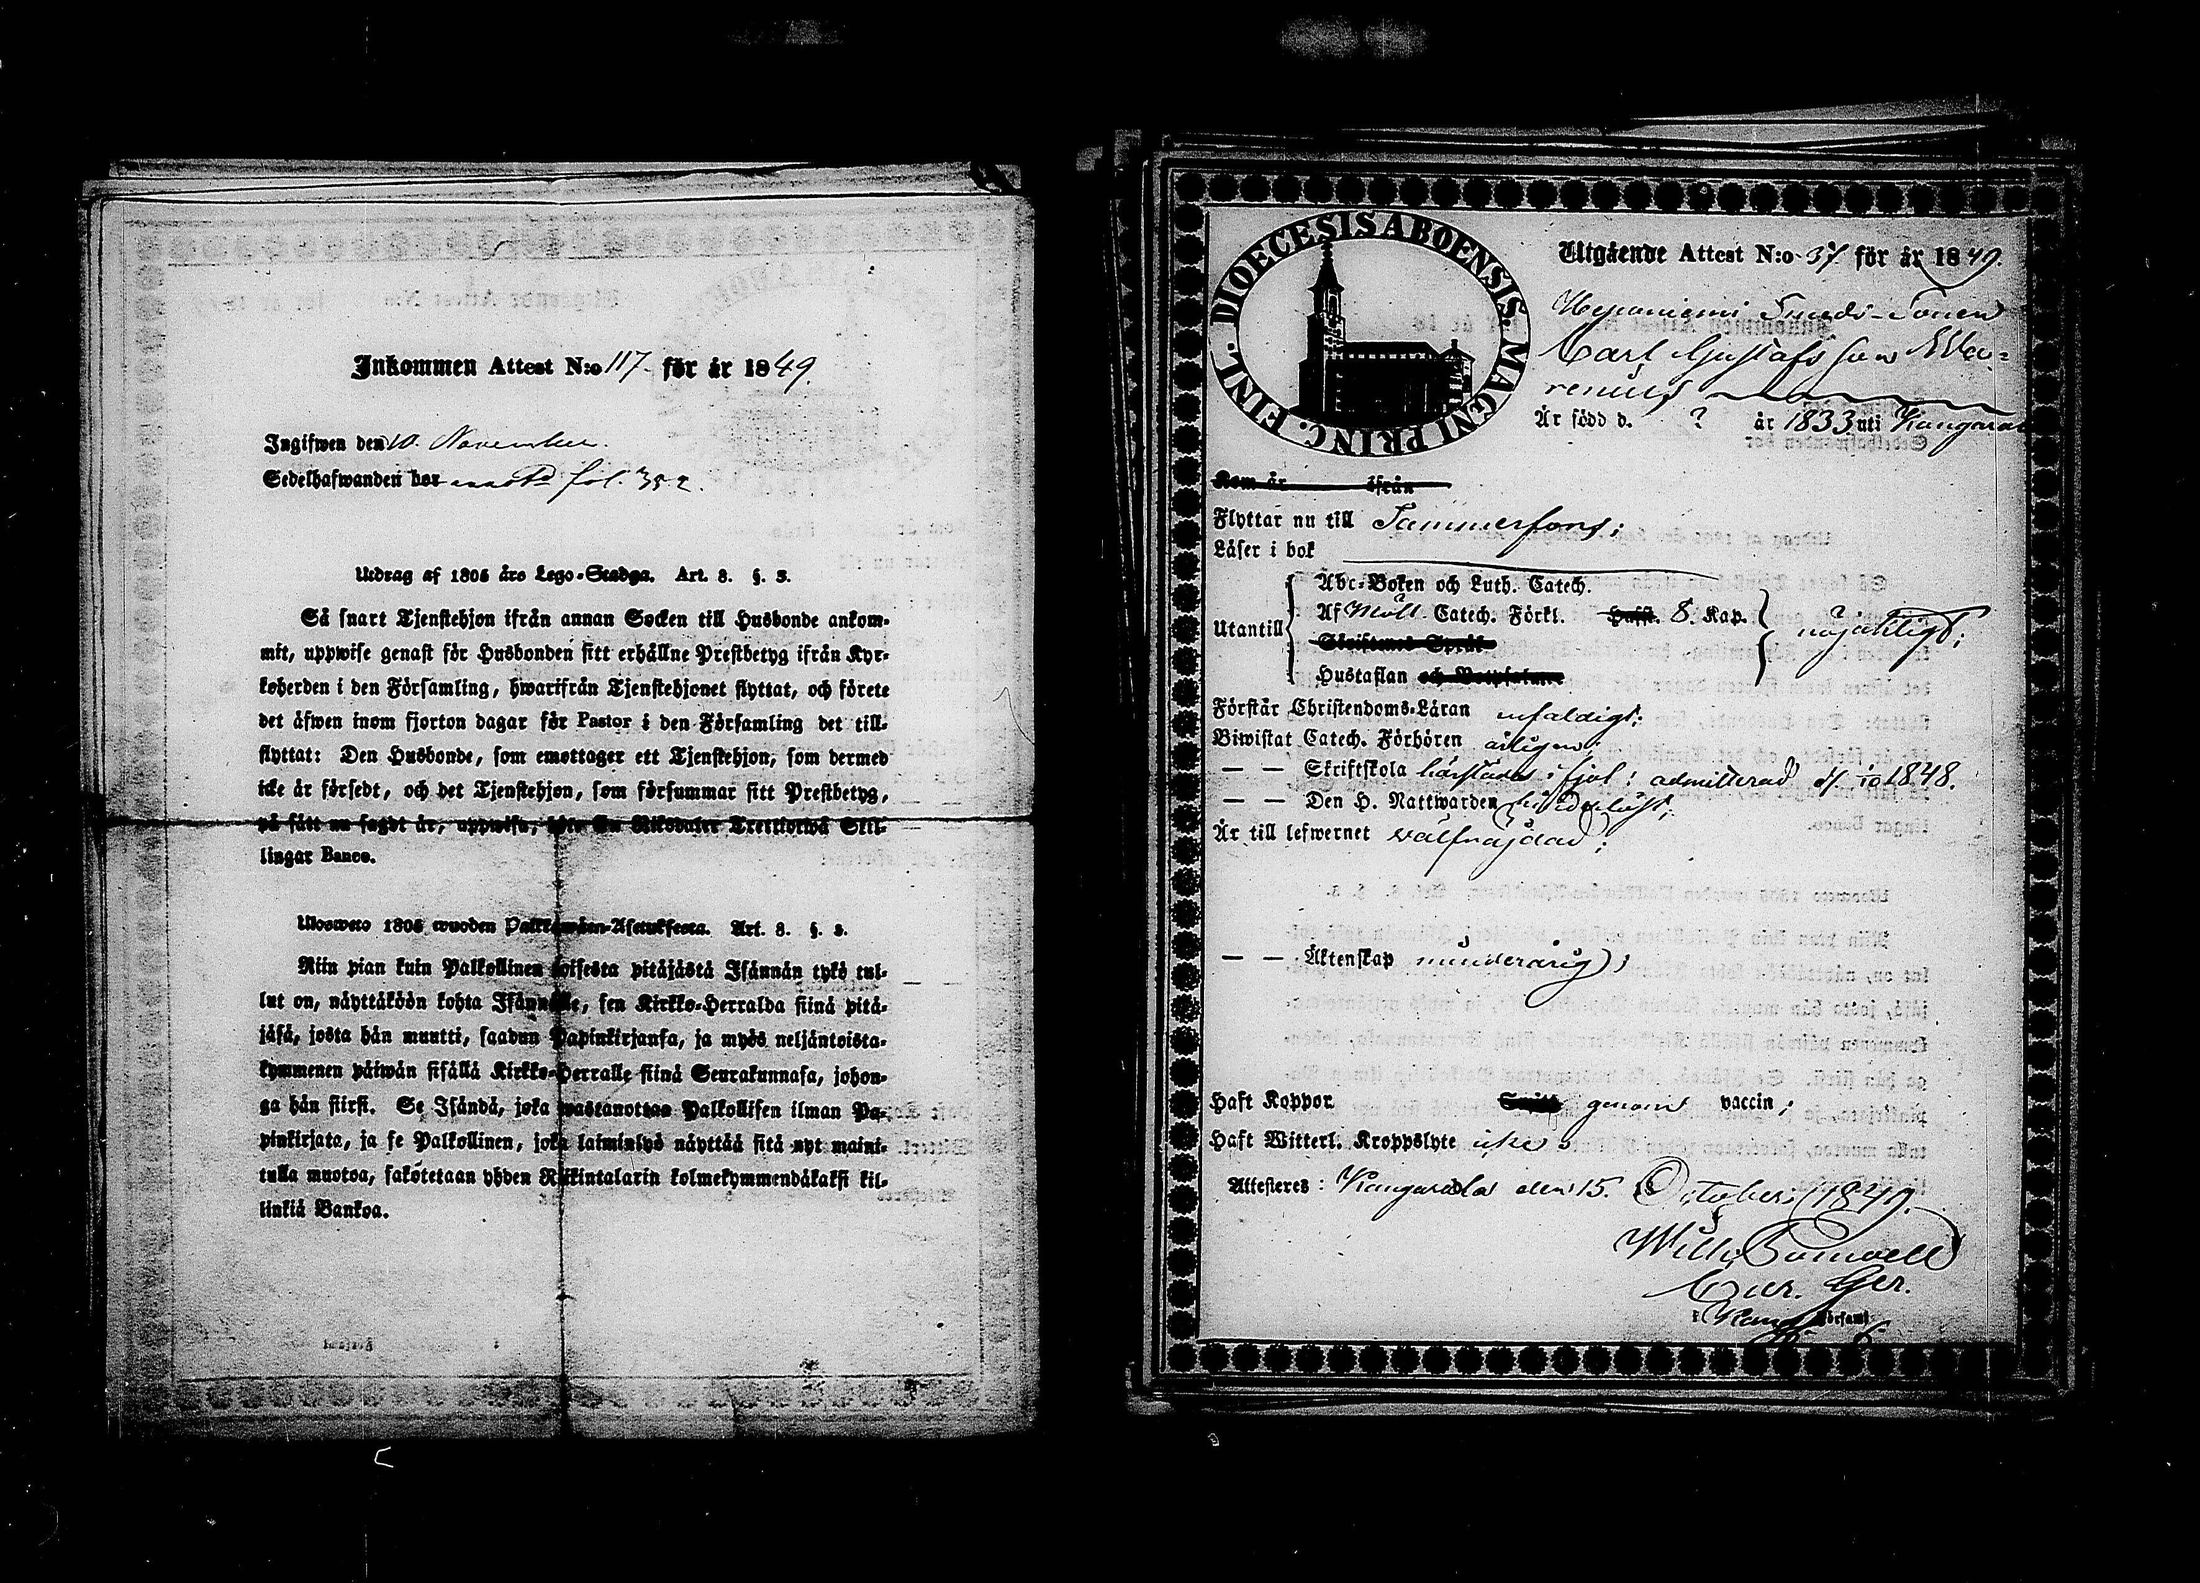 Inkommen Attest N:o 117 för år 1849.
Ingifwen den 10. November.
Sedelhafwanden bor fol. 352.
Utdrag af 1805 års Lego-Stadga. Art. 8. §. 3.
Så snart Tjenstehjon ifrån annan Socken till Husbonde ankom-
mit, uppwise genast för Husbonden sitt erhållne Prestbetyg ifrån Kyr-
koherden i den Församling, hwarifrån Tjenstehjonet flyttat, och förete
det äfwen inom fjorton dagar för Pastor i den Församling det till-
flyttat: Den Husbonde, som emottager ett Tjenstehjon, som dermed
icke är försedt, och det Tjenstehjon, som försummar sitt Prestbetyg,
på sätt nu sagdt är, uppwisa, böte En Riksdaler Trettiotwå Skil-
lingar Banco.
Ulosweto 1805 wuoden Palkkawäen-Asetuksesta. Art. 8. §. 3.
Niin pian kuin Palkollinen toisesta pitäjästä Isännän tykö tul-
lut on, näyttäköön kohta Isännälle, sen Kirkko-Herralda siinä pitä-
jäsä, josta hän muutti, saadun Papinkirjansa, ja myös neljäntoista-
kymmenen päiwän sisällä Kirkko-Herralle siinä Seurakunnasa, johon-
ga hän siirsi. Se Isändä, joka wastanottaa Palkollisen ilman Pa-
pinkirjata, ja se Palkollinen, joka laiminlyö näyttää sitä nyt maini-
tulla muotoa, sakotetaan yhden Riikintalarin kolmekymmendäkaksi kil-
linkiä Bankoa.
DIOECESIS ABOENSIS. MAGNI PRINC. FINL.
Utgående Attest N:o 37. för år 1849.
Smeds-Sonen
Carl Gustafsson We-
renius
Är född d. ? år 1833 uti Kangasala
Kom år ifrån
Flyttar nu till Tammerfors;
Läser i bok
Abc-Boken och Luth. Catech.
Utantill Af Catech. Förkl. Hufst. 8. Kap. nöjaktigt;
Skriftenes Språk
Hustaflan och Botpsalmer
Förstår Christendoms-Läran enfaldigt;
Biwistat Catech. Förhören årligen;
— — Skriftskola härstädes i fjol: admitterad 1848.
— — Den H. Nattwarden
Är till lefwernet välfrejdad;
— — Äktenskap minderårig;
Haft Koppor genom vaccin;
Haft Witterl. Kroppslyte icke.
Attesteres: Kangasala den 15. October 1849.
Willh.
Cur. Ger.
i Kang Församl